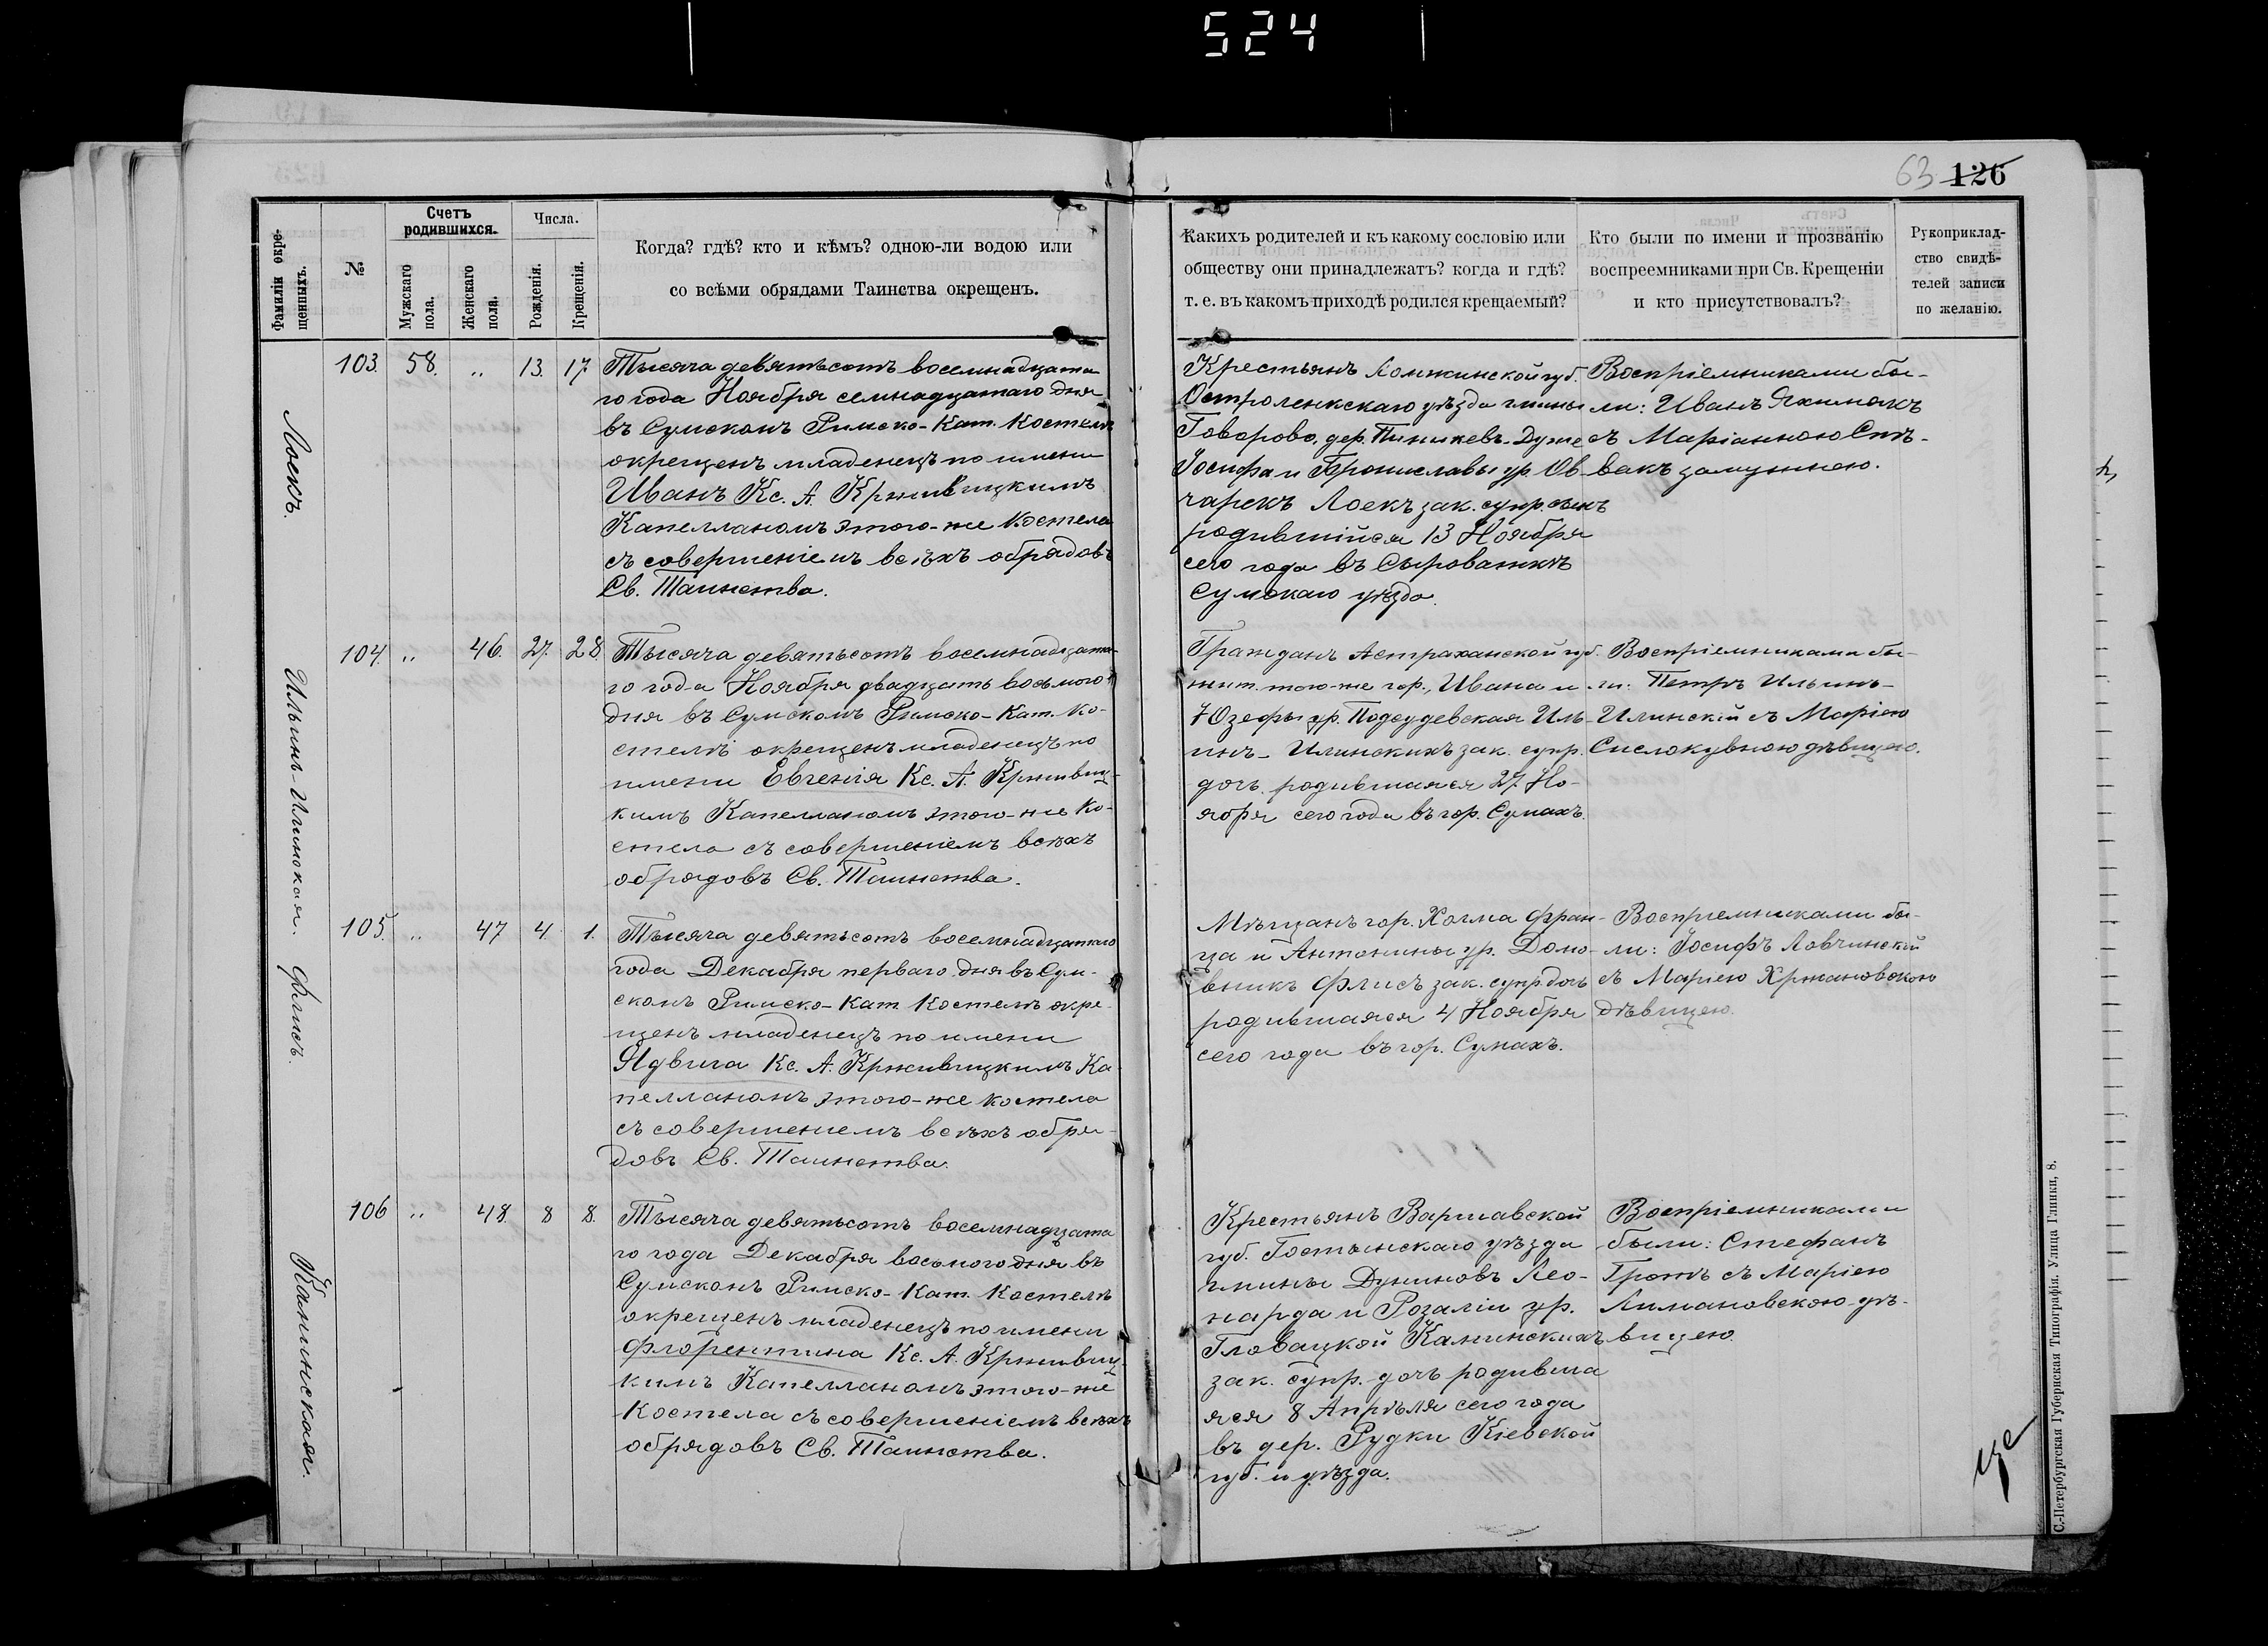 524
63 126
Фамиліи окре-
щенныхъ.
№
Счетъ
родившихся.
Мужскаго
пола.
Женскаго
пола.
Числа.
Рожденія.
Крещенія.
Когда? гдѣ? кто и кѣмъ? одною-ли водою или
со всѣми обрядами Таинства окрещенъ.
Какихъ родителей и къ какому сословію или
обществу они принадлежатъ? когда и гдѣ?
т. е. въ какомъ приходѣ родился крещаемый?
Кто были по имени и прозванію
воспреемниками при Св. Крещеніи
и кто присутствовалъ?
Рукоприклад-
ство свидѣ-
телей записи
по желанію.
Лоекъ.
103. 58. „ 13. 17.
Тысяча девятьсотъ восемнадцата
го года Ноября семнадцатаго дня
въ Сумскомъ Римско-Кат. Костелѣ
окрещенъ младенецъ по имени
Иванъ Кс. А. Крживицкимъ
Капелланомъ этого-же Костела
съ совершеніемъ всѣхъ обрядовъ
Св. Таинства.
Крестьянъ Ломжинской губ.
Остроленкскаго уѣзда гмины
Говорово, дер.
Іосифа и Брониславы ур. Ов-
чарекъ Лоекъ зак. супр. сынъ
родившійся 13 Ноября
сего года въ Сыроваткѣ
Сумскаго уѣзда.
Воспріемниками бы-
ли: Иванъ Яхимякъ
съ Маріанною Спѣ-
вакъ замужнею.
Ильинъ-Илинская.
104. „ 46. 27. 28.
Тысяча девятьсотъ восемнадцата-
го года Ноября двадцать восьмого
дня въ Сумскомъ Римско-Кат. Ко-
стелѣ окрещенъ младенецъ по
имени Евгенія Кс. А. Крживиц-
кимъ Капелланомъ этого-же Ко-
стела съ совершеніемъ всѣхъ
обрядовъ Св. Таинства.
Гражданъ Астраханской губ.
жит. того-же гор., Ивана и
Юзефы ур. Подсудевская Иль-
инъ-Илинскихъ зак. супр.
дочь родившаяся 27 Но-
ября сего года въ гор. Сумахъ.
Воспріемниками бы-
ли: Петръ Ильинъ-
Илинскій съ Маріею
дѣвицею.
Флисъ.
105. „ 47 4 1.
Тысяча девятьсотъ восемнадцатаго
года Декабря перваго дня въ Сум-
скомъ Римско-Кат. Костелѣ окре-
щенъ младенецъ по имени
Ядвига Кс. А. Крживицкимъ Ка-
пелланомъ этого-же костела
съ совершеніемъ всѣхъ обря-
довъ Св. Таинства.
Мѣщанъ гор. Холма Фран-
ца и Антонины ур. Домо-
вникъ Флисъ зак. супр. дочь
родившаяся 4 Ноября
сего года въ гор. Сумахъ.
Воспріемниками бы-
ли: Іосифъ Ловчинскій
съ Маріею Хржановскою
дѣвицею.
Каминская.
106 „ 48. 8 8.
Тысяча девятьсотъ восемнадцата
го года Декабря восьмого дня въ
Сумскомъ Римско-Кат. Костелѣ
окрещенъ младенецъ по имени
Флорентина Кс. А. Крживиц-
кимъ Капелланомъ этого-же
Костела съ совершеніемъ всѣхъ
обрядовъ Св. Таинства.
Крестьянъ Варшавской
губ. Гостынскаго уѣзда
гмины Дуниновъ Лео-
нарда и Розаліи ур.
Гловацкой Каминскихъ
зак. супр. дочь родивша
яся 8 Апрѣля сего года
въ дер. Рудки Кіевской
губ. и уѣзда.
Воспріемниками
были: Стефанъ
Гротъ съ Маріею
Лимановскою дѣ-
вицею.
С.-Петербургская Губернская Типографія. Улица Глинки, 8.